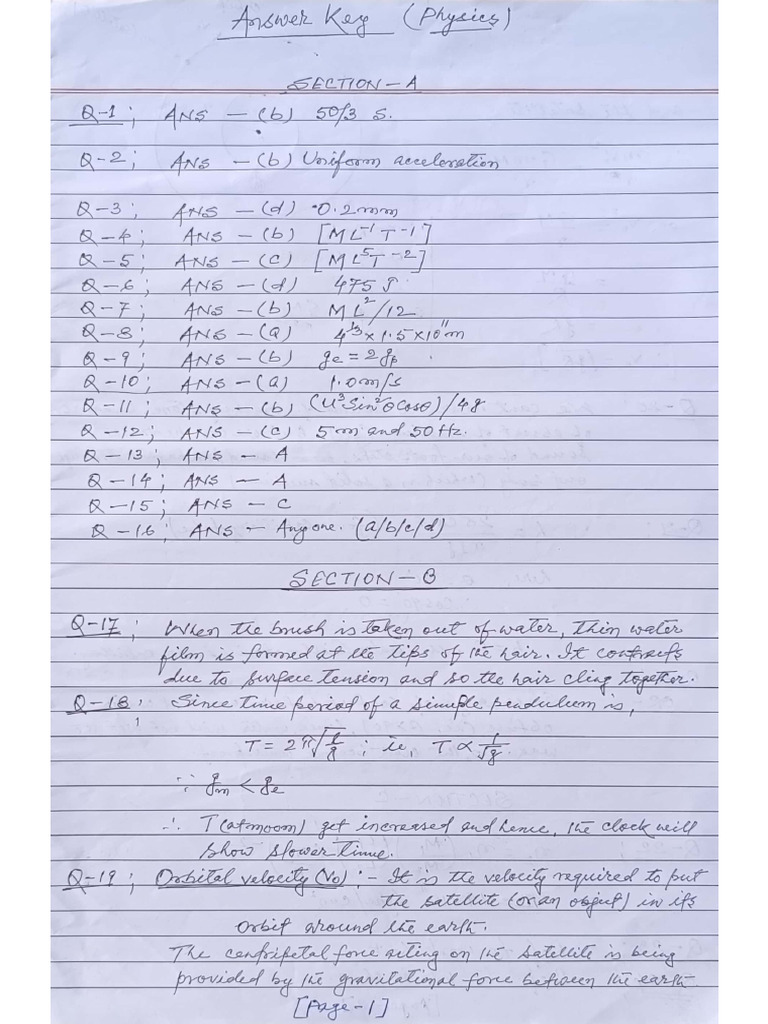 Answer Key (Physics)
SECTION-A
Q-1; ANS - (b) 50/3 S.
Q-2; ANS - (b) Uniform acceleration
Q-3; ANS - (d) 0.2mm
Q-4; ANS - (b) [ML⁻¹T⁻¹]
Q-5; ANS - (c) [ML⁵T⁻²]
Q-6; ANS - (d) 475 J.
Q-7; ANS - (b) ML²/12
Q-8; ANS - (a) 4^1/3 x 1.5 x 10¹¹m
Q-9; ANS - (b) ge = 2gp
Q-10; ANS - (a) 1.0m/s
Q-11; ANS - (b) (U³Sin²θCosθ)/4g.
Q-12; ANS - (c) 5m and 50Hz.
Q-13; ANS - A
Q-14; ANS - A
Q-15; ANS - C
Q-16; ANS - Anyone. (a/b/c/d)
SECTION-B
Q-17; When the brush is taken out of water, thin water
film is formed at the tips of the hair. It contracts
due to surface tension and so the hair cling together.
Q-18; Since time period of a simple pendulum is,
T = 2π√l/g ; ie, T ∝ 1/√g.
∵ gm < ge
∴ T(at moom) get increased and hence, the clock will
show slower time.
Q-19; Orbital velocity (Vo) :- It is the velocity required to put
the satellite (or an object) in its
orbit around the earth.
The centripetal force acting on the satellite is being
provided by the gravitational force between the earth
[Page-1]